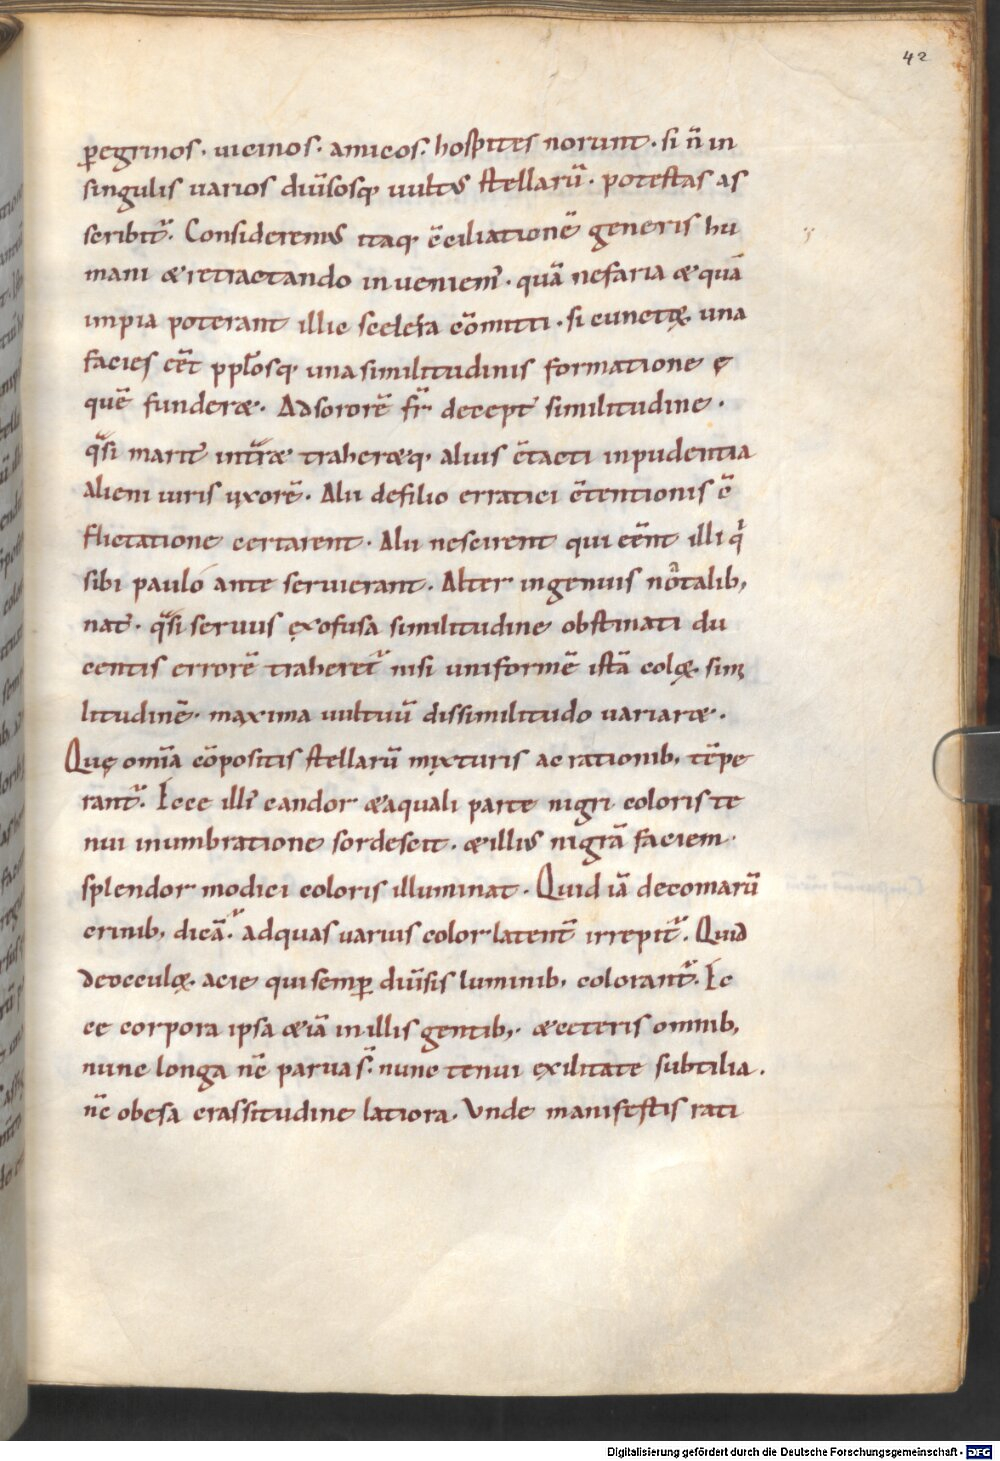 42
ꝑegrinos · uicinos · amicos · hospites norunt · si n̄ in
singulis uarios diuīsosq; uultus stellarū · potestas as
scribit᷑. Consideremus itaq; c̄ciliationē generis hu
mani & retractando inueniem᷑ · quā nefaria & quā
impia poterant illic scelera cōmitti · si cunctę una
facies eēt pplosq; una similitudinis formatione ę
quē funder& · Ad sororē fr̄ decept᷑ similitudine ·
q̄si marit᷑ intra& traher&q; alius c̄tacti inpudentia
alieni iuris uxorē · Alii de filio erratici c̄tentionis c̄
flictatione certarent · Alii nescirent qui eēnt illi q̄
sibi paulo ante seruierant · Alter ingenuis n̄ talib;
nat᷑ · q̄si seruus ex ofusa similitudine obstinati du
centis errorē traheret᷑ nisi uniformē istā col&ę · simi
litudinē · maxima uultuū dissimilitudo uariar& ·
Quę omīa cōpositis stellarū mixturis ac rationib; tēpe
rant᷑. Ecce illi᷑ candor &aquali parte nigri coloris te
nui inumbratione sordescit · & illius nigrā faciem ·
splendor modici coloris illuminat · Quid iā de comarū
crinib; dicā · ad quas uarius color latent᷑ irrepit᷑. Quid
de occulę · acie qui semꝑ diuīsis luminib; colorant᷑. Ec
ce corpora ipsa &iā in illis gentib; · & ceteris omnib;
nunc longa nc̄ parua s̄ · nunc tenui exilitate subtilia ·
nc̄ obesa crassitudine latiora · Vnde manifestis rati
Digitalisierung gefördert durch die Deutsche Forschungsgemeinschaft - DFG